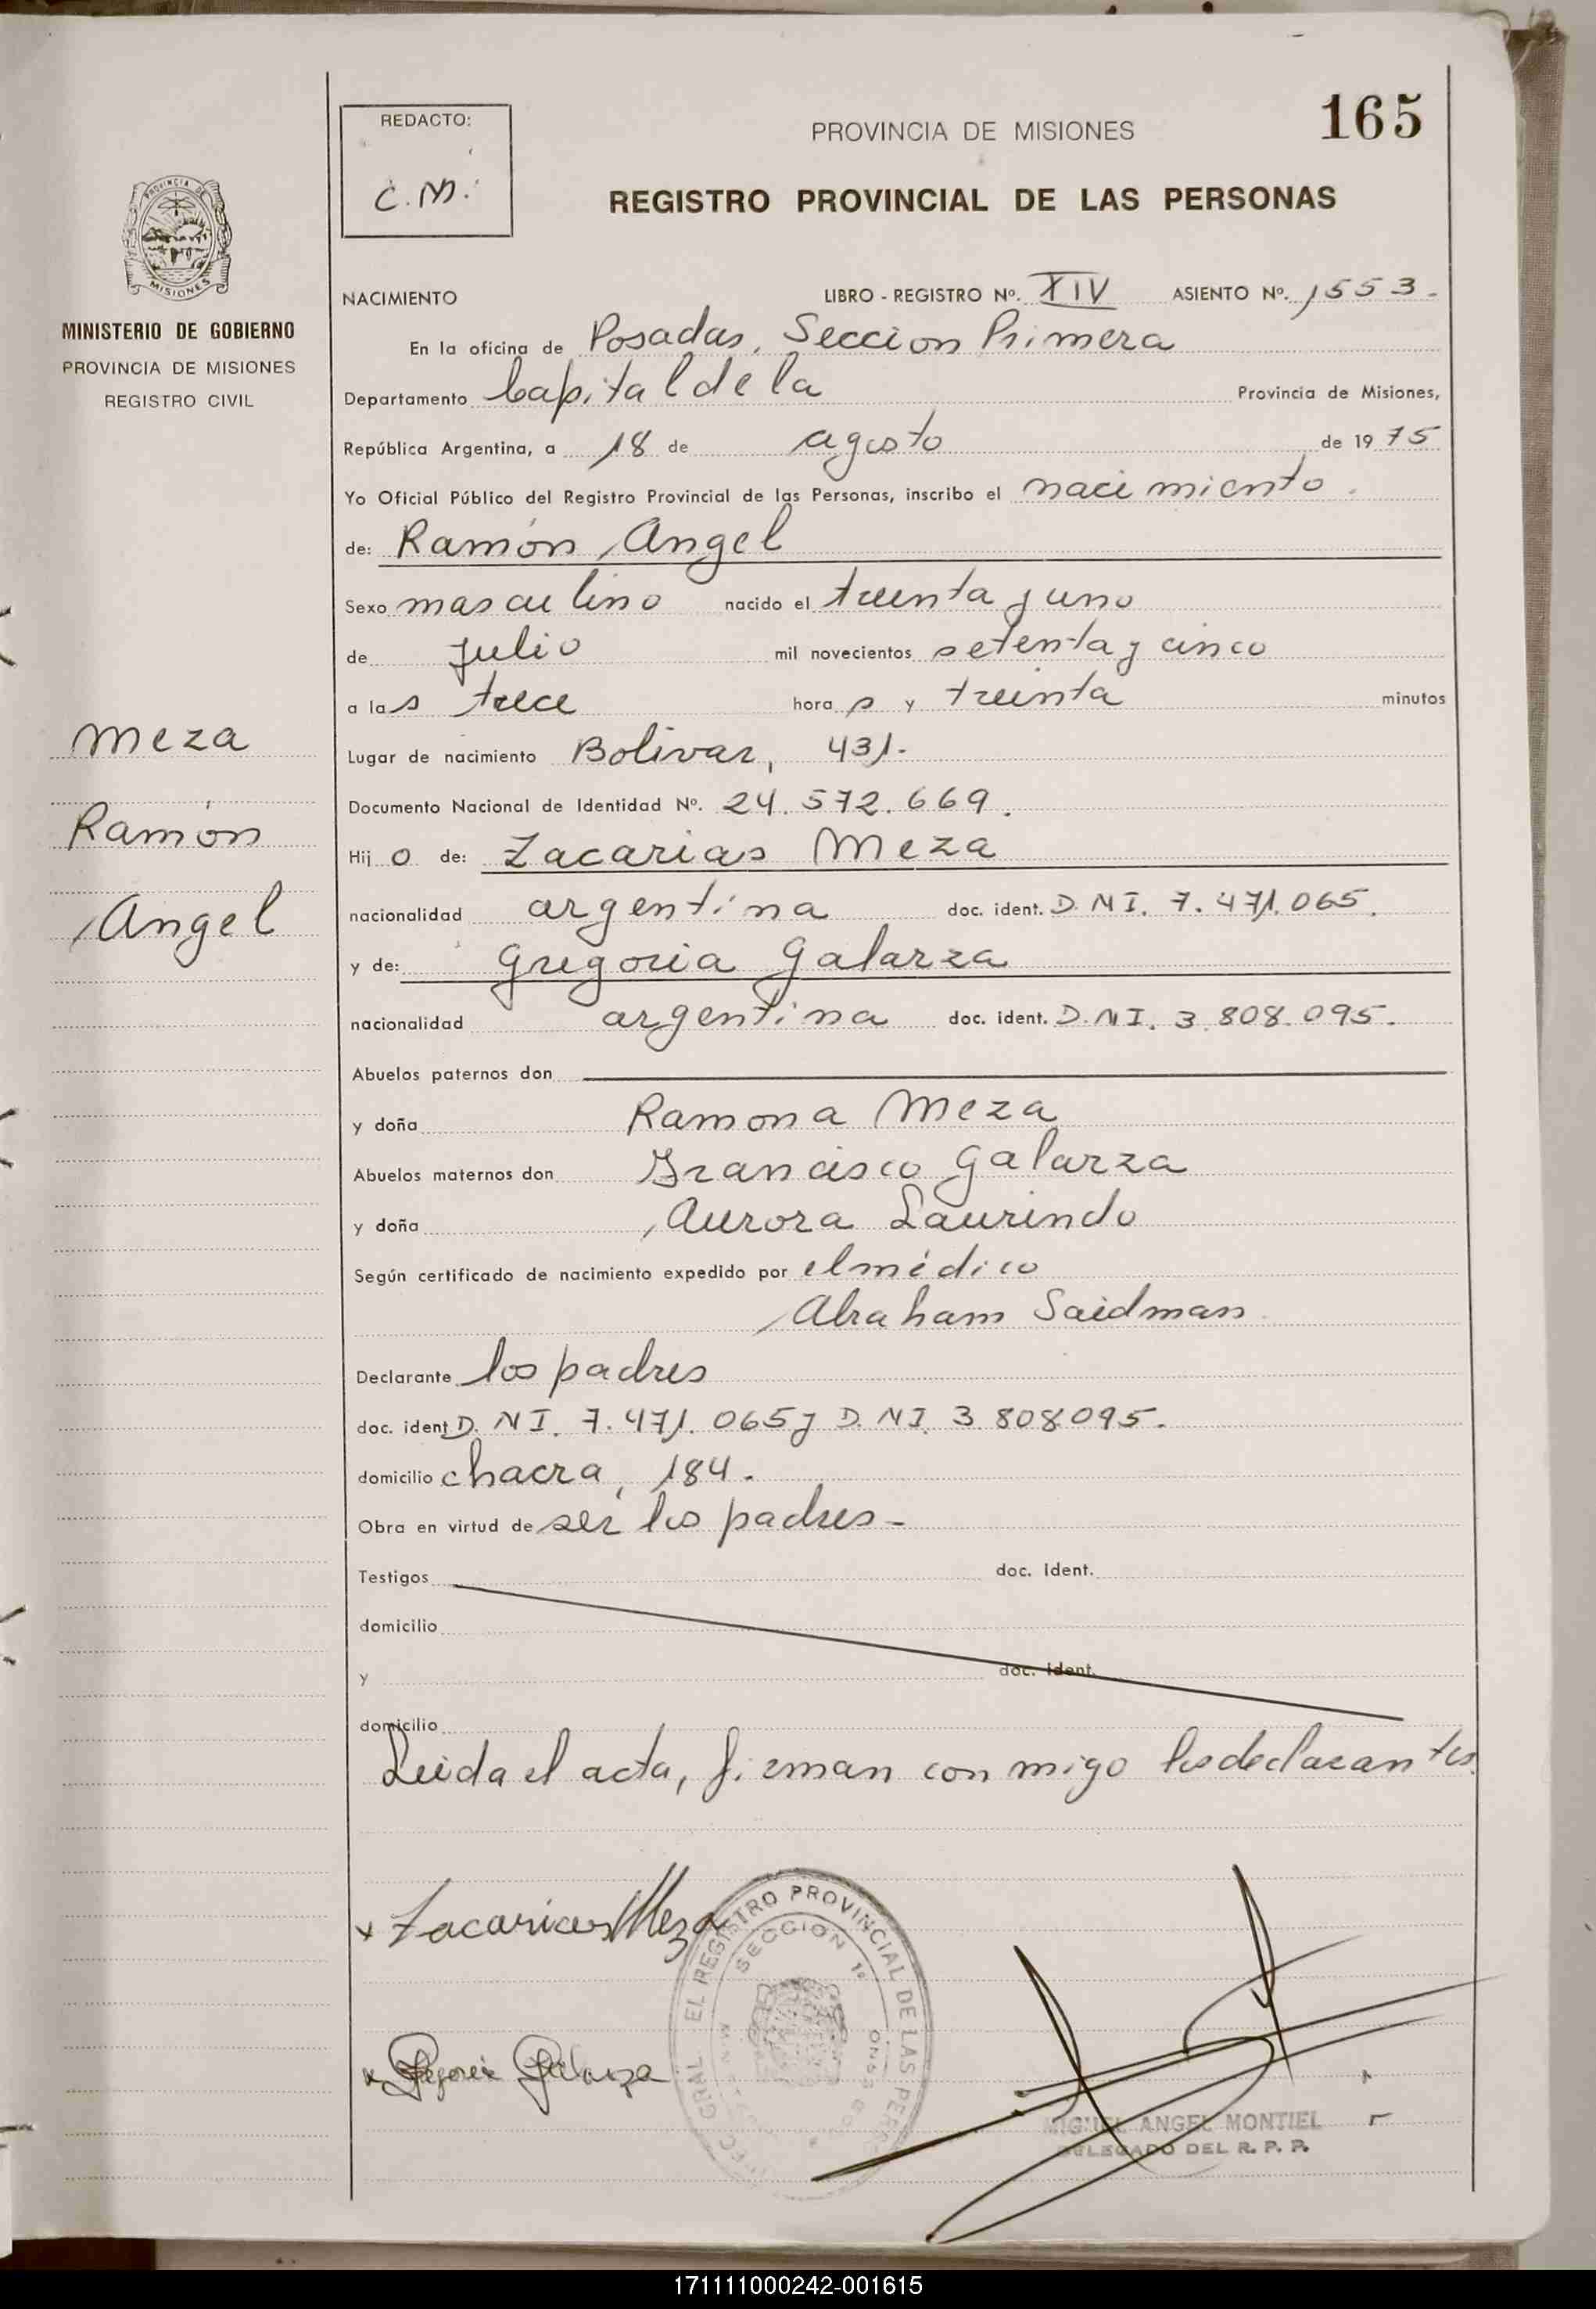 165
REDACTO:
C.M.
PROVINCIA DE MISIONES
REGISTRO PROVINCIAL DE LAS PERSONAS
PROVINCIA DE
MISIONES
MINISTERIO DE GOBIERNO
PROVINCIA DE MISIONES
REGISTRO CIVIL
Meza
Ramón
Angel
NACIMIENTO LIBRO - REGISTRO Nº. XIV ASIENTO Nº. 1553.
En la oficina de Posadas, Seccion Primera
Departamento Capital de la Provincia de Misiones,
República Argentina, a 18 de agosto de 1975
Yo Oficial Público del Registro Provincial de las Personas, inscribo el nacimiento.
de: Ramón Angel
Sexo masculino nacido el treinta y uno
de julio mil novecientos setenta y cinco
a las trece horas y treinta minutos
Lugar de nacimiento Bolivar, 431.
Documento Nacional de Identidad Nº. 24.572.669.
Hijo de: Zacarias Meza
nacionalidad argentina doc. ident. D.N.I. 7.471.065.
y de: Gregoria Galarza
nacionalidad argentina doc. ident. D.N.I. 3.808.095.
Abuelos paternos don
y doña Ramona Meza
Abuelos maternos don Francisco Galarza
y doña Aurora Laurindo
Según certificado de nacimiento expedido por el médico
Abraham Saidman
Declarante los padres
doc. ident D.N.I. 7.471.065 y D.N.I. 3.808095.
domicilio chacra, 184.
Obra en virtud de ser los padres-
Testigos doc. ident.
domicilio
y doc. ident.
domicilio
Leida el acta, firman con migo los declarantes.
x Zacarias Meza
x Gregoria Galarza
GRAL. EL REGISTRO PROVINCIAL DE LAS PERS
SECCION 1º
MIGUEL ANGEL MONTIEL
DELEGADO DEL R. P. P.
171111000242-001615